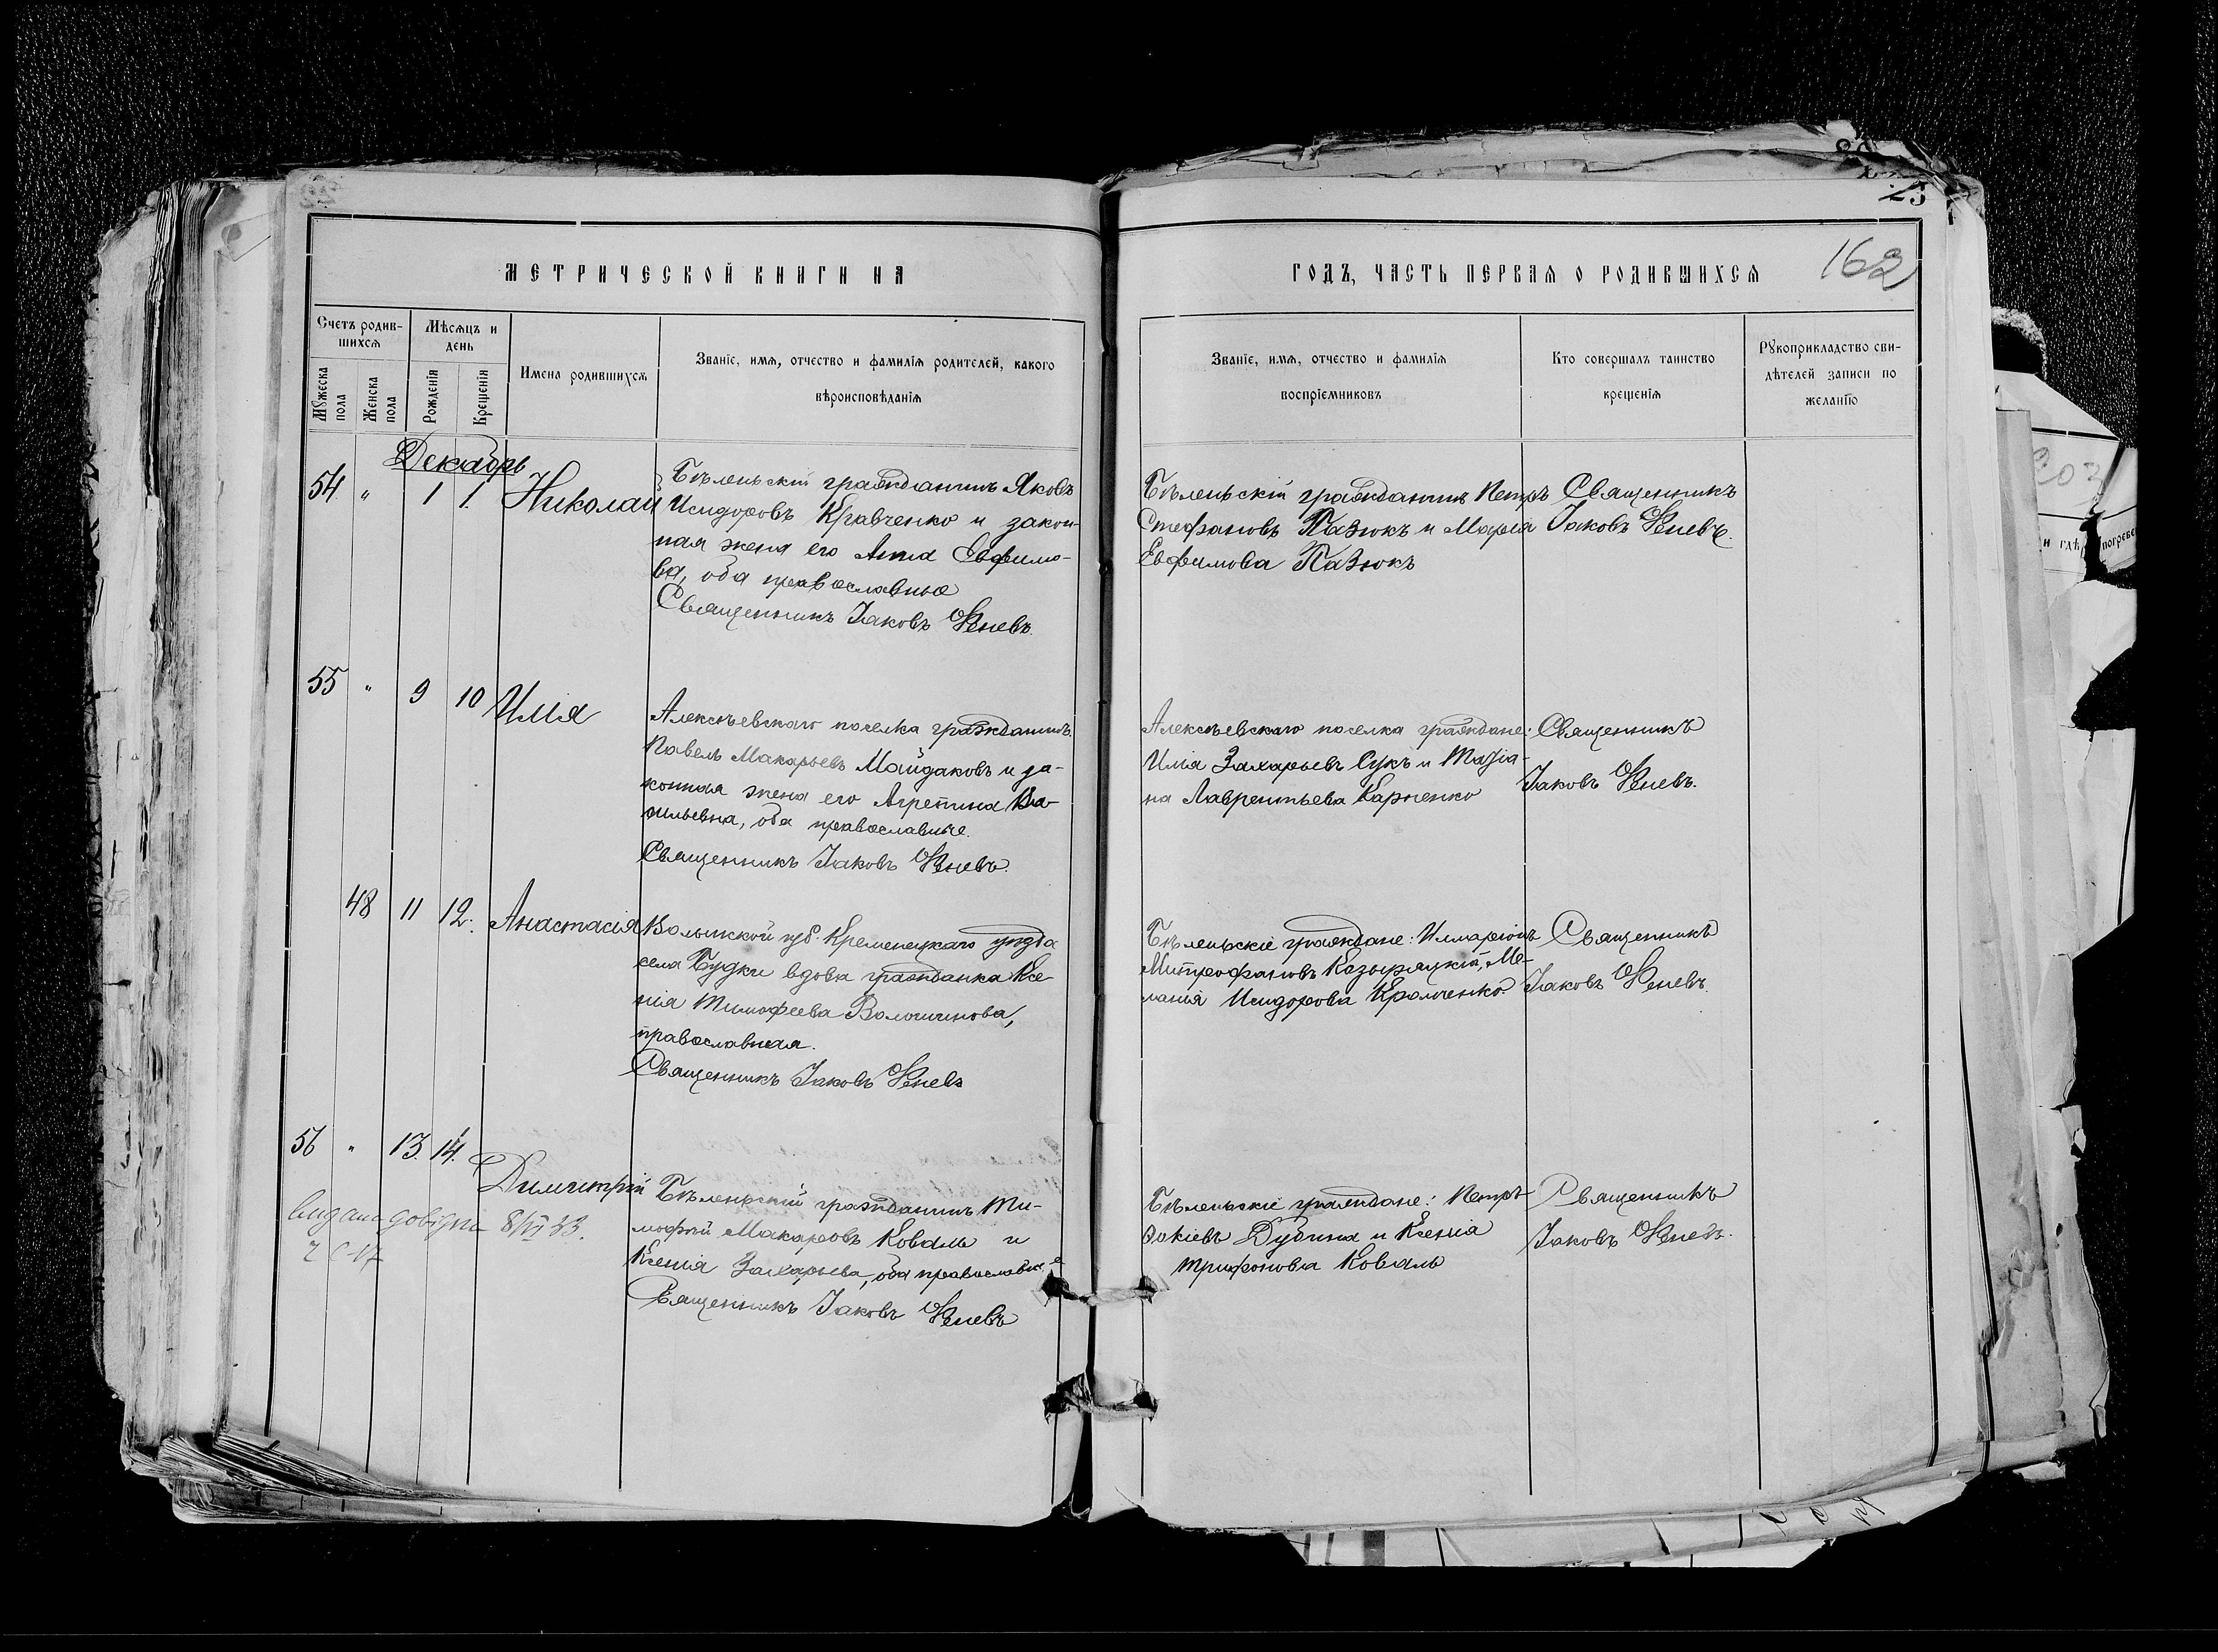 МЕТРИЧЕСКОЙ КНИГИ НА
Счетъ родив-
шихся
Мѣсяцъ и
день
Мужеска
пола
Женска
пола
Рожденія
Крещенія
Имена родившихся
Званіе, имя, отчество и фамилія родителей, какого
вѣроисповѣданія
Декабрь
54 " 1 1. Николай
Бѣленьскій гражданинъ Яковъ
Исидоровъ Кравченко и закон-
ная жена его Анна Евфимо-
ва, оба православные
Священникъ Іаковъ
55 " 9 10 Илія
Алексѣевскаго поселка гражданинъ
Павелъ Макарьевъ Майдаковъ и за-
конная жена его Агрепина Ва-
сильевна, оба православные.
Священникъ Іаковъ
48 11 12. Анастасія
Волынской губ. Кременецкаго уѣзда
села Будки вдова гражданка Ксе-
нія Тимофеева Волошинова,
православная.
Священникъ Іаковъ
56 " 13. 14. Димитрій
Бѣленьскій гражданинъ Ти-
мофей Макаровъ Коваль и
Ксенія Захарьева, оба православные
Священникъ Іаковъ
8/VI 33.
23
162
ГОДЪ, ЧАСТЬ ПЕРВАЯ О РОДИВШИХСЯ
Званіе, имя, отчество и фамилія
воспріемниковъ
Кто совершалъ таинство
крещенія
Рукоприкладство сви-
дѣтелей записи по
желанію
Бѣленьскій гражданинъ Петръ
Стефановъ Пазюкъ и Марія
Евфимова Пазюкъ
Священникъ
Іаковъ
Алексѣевскаго поселка граждане:
Илія Захарьевъ Сукъ и Маріа-
на Лаврентьева Карпенко
Священникъ
Іаковъ
Бѣленьскіе граждане: Илларіонъ
Митрофановъ Козырацкій, Ме-
ланія Исидорова
Священникъ
Іаковъ
Бѣленьскіе граждане: Петръ
Дубина и Ксенія
Трифонова Коваль
Священникъ
Іаковъ
и гдѣ
погребе